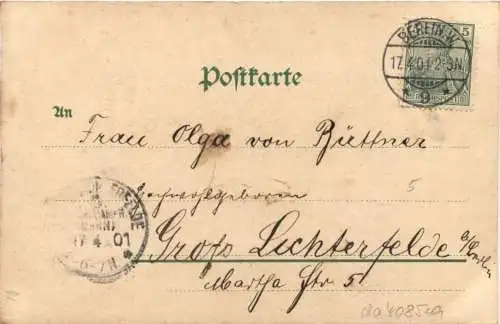 Postkarte
BERLIN.W.
17.4.01 2-3N
* 9 *
5
An
Frau Olga von Büttner
Hochwohlgeboren
5
Gross Lichterfelde b/Berlin
Martha Str 5
17 4 01